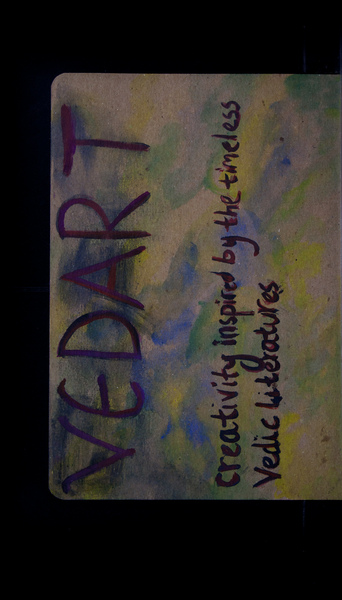 VEDART
Creativity inspired by the timeless
Vedic Literatures